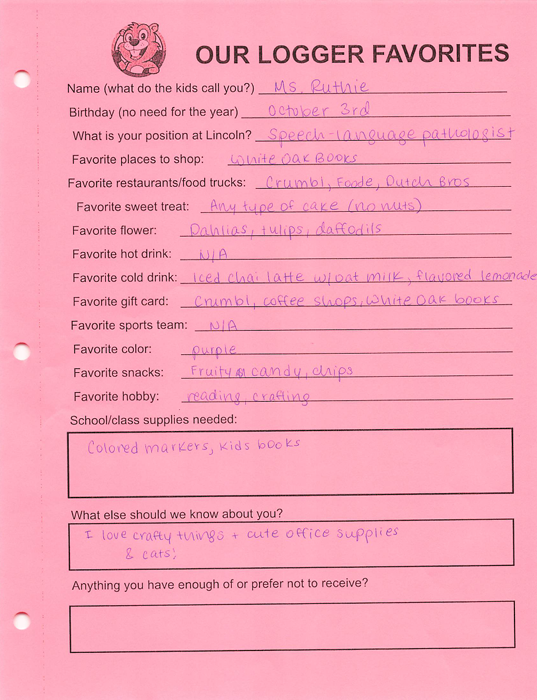 OUR LOGGER FAVORITES
Name (what do the kids call you?) Ms. Ruthie
Birthday (no need for the year) October 3rd
What is your position at Lincoln? Speech-language pathologist
Favorite places to shop: White Oak Books
Favorite restaurants/food trucks: Crumbl, Foode, Dutch Bros
Favorite sweet treat: Any type of cake (no nuts)
Favorite flower: Dahlias, tulips, daffodils
Favorite hot drink: N/A
Favorite cold drink: Iced chai latte w/oat milk, flavored lemonade
Favorite gift card: Crumbl, coffee shops, White Oak books
Favorite sports team: N/A
Favorite color: purple
Favorite snacks: Fruity candy, chips
Favorite hobby: reading, crafting
School/class supplies needed:
Colored markers, kids books
What else should we know about you?
I love crafty things + cute office supplies
& cats!
Anything you have enough of or prefer not to receive?